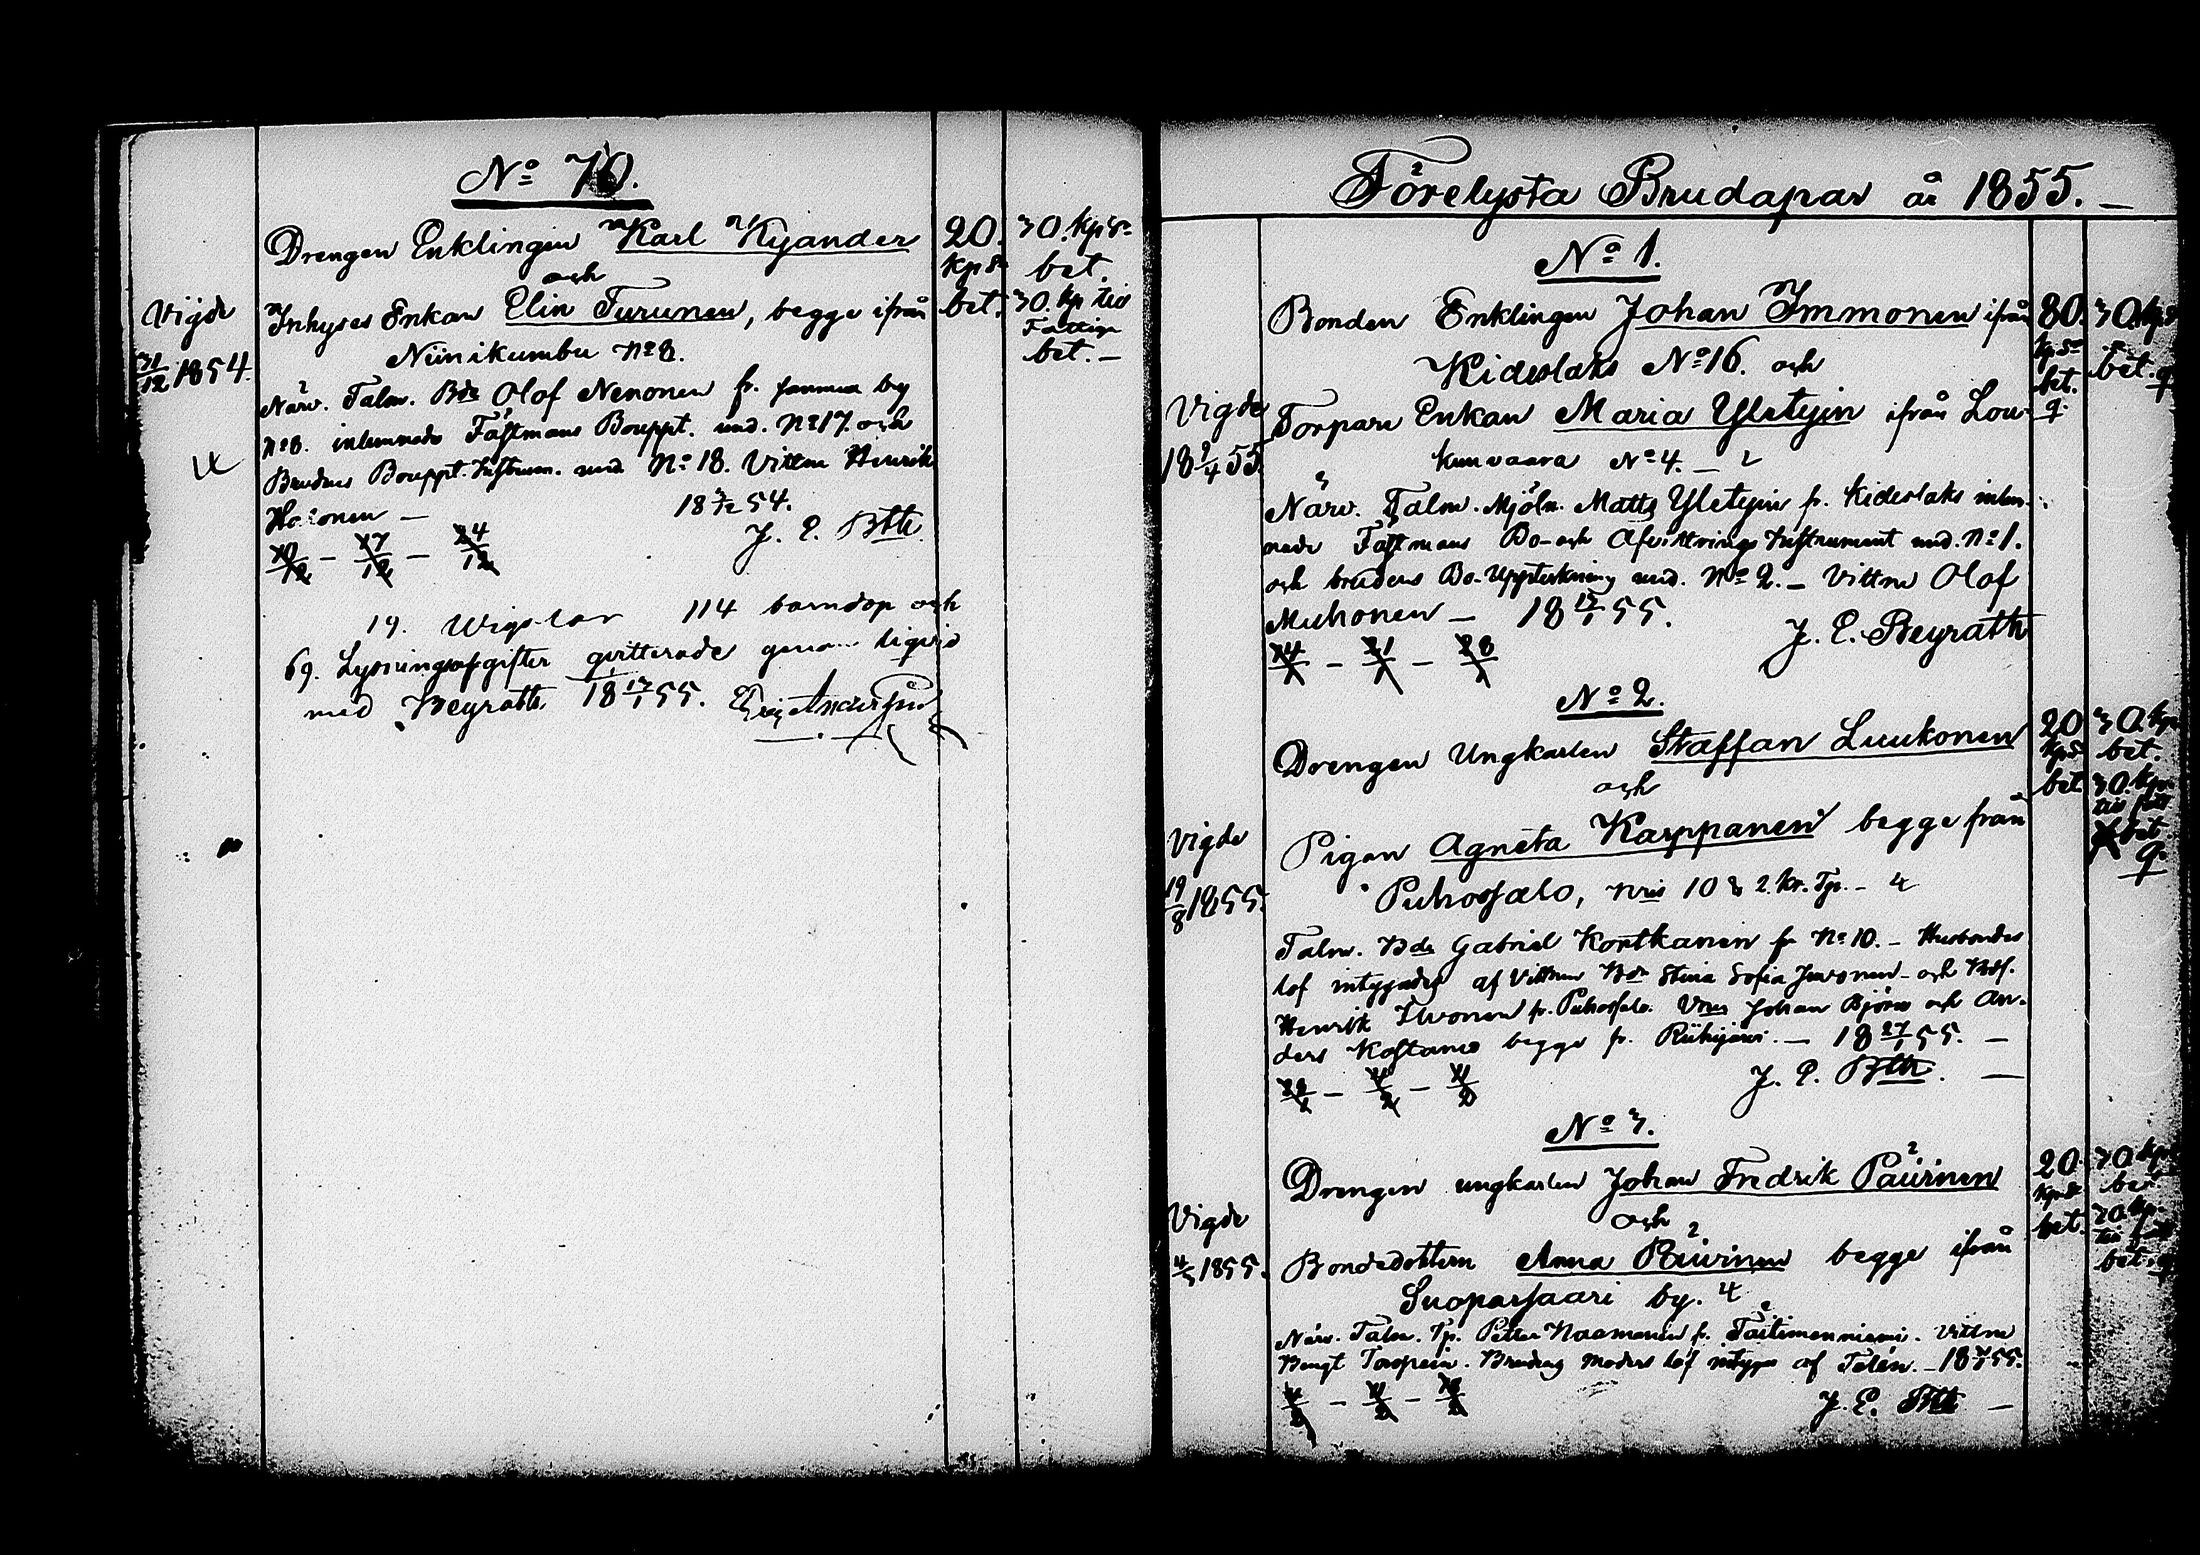 No 70.
Drengen Enklingen Karl Kyander
och
Inhyses Enkan Elin Turunen, begge ifrån
Niinikumbu No 8.
Närv. Talm. Bde Olof Nenonen fr. samma by
No 8. inlemnade Fästmans Bouppt. und. No 17. och
Brudens Bouppt. Instrum. und No 18. Vittne Henrik
18 54.
J. E. Bth.
10/12 – 17/12 – 24/12
Vigde
31/12 1854.
20.
Kp sr
bet.
30. Kp sr
bet.
30 Kp till
Fattige
bet. –
19. Wigslar 114 barndop och
69. Lysningsafgifter qvitterade genom liqvid
med Beyrath 18 17/1 55.
Förelysta Brudapar år 1855. –
No 1.
Bonden Enklingen Johan Immonen ifrån
Kideslaks No 16. och
Torpare Enkan Maria Yletyin ifrån Lou-
kunvaara No 4. –
Närv. Talm. Mjöln. Matts Yletyin fr. Kideslaks inlem-
nade Fästmans Bo- och Afvittrings Instrument und. No 1.
och brudens Bo-Uppteckning und. No 2. – Vittne Olof
Muhonen – 18 55.
J. E. Beyrath
14/1 – 21/1 – 28/1
Vigde
18 9/4 55
80.
Kp sr
bet.
q.
30. Kp sr
bet.
q
No 2.
Drengen Ungkarlen Staffan Luukonen
och
Pigan Agneta Karppanen begge från
Puhossalo, Nris 10 & 2. Kr. Tp. – 4
Talm. Bde Gabriel Kortkanen fr No 10. – Husbondes
lof intygades af Vittnen Bde Stina Sofia – och
Henrik Ilvonen fr. Puhossalo. Vne Johan Björn och An-
ders Kostamo begge fr. Riihijärvi. – 18 27/1 55. –
J. E. Bth. –
28/1 – 4/2 – 11/2
Vigde
19/8 1855.
20
Kp sr
bet
30. Kp
bet.
30. Kp
till fatt.
bet.
q.
No 3.
Drengen ungkarlen Johan Fredrik Päivinen
och
Bondedottern Anna Päivinen begge ifrån
Suoparsaari by. 4
Närv. Talm. Tp. Petter Naamanen fr. Täitimenniemi. Vittne
Bengt Torspein. Brudens moders lof intygas af Talm. – 18 55.
4/2 – 11/2 – 18/2
J. E. Bth –
Vigde
1855.
20
Kp sr
bet.
30. Kp
bet.
30. Kp.
till fatt
bet. q